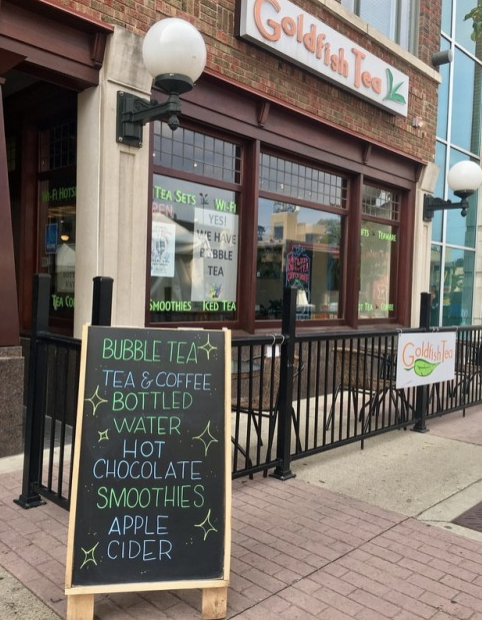 Goldfish Tea
WI-FI HOTS
TEA CO
TEA SETS WI-FI
OPEN
YES!
WE HAVE
BUBBLE
TEA
SMOOTHIES ICED TEA
TEAWARE
TEA COFFEE
Goldfish Tea
BUBBLE TEA
TEA & COFFEE
BOTTLED
WATER
HOT
CHOCOLATE
SMOOTHIES
APPLE
CIDER